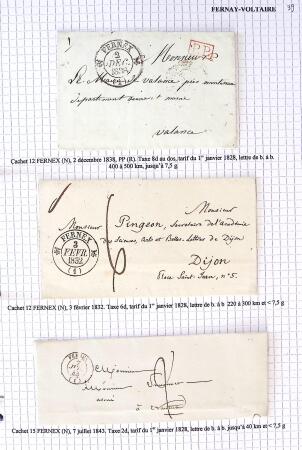 FERNAY-VOLTAIRE
39
FERNEX
2
DEC.
1838
(1)
P.P.
Monsieur
Le Maire de valance près montereau
département seine et marne
valance
Cachet 12 FERNEX (N), 2 décembre 1838, PP (R). Taxe 8d au dos, tarif du 1er janvier 1828, lettre de b. à b.
400 à 500 km, jusqu'à 7,5 g
Monsieur
Monsieur Pingeon, Secrétaire de l'académie
des Sciences, Arts et Belles-Lettres de Dijon
Dijon
Place Saint-Jean, n° 5.
6
FERNEX
3
FEVR.
1832
(1)
Cachet 12 FERNEX (N), 3 février 1832. Taxe 6d, tarif du 1er janvier 1828, lettre de b. à b 220 à 300 km et < 7,5 g
Monsieur
Monsieur
2
Cachet 15 FERNEX (N), 7 juillet 1843. Taxe 2d, tarif du 1er janvier 1828, lettre de b. à b. jusqu'à 40 km et < 7,5 g